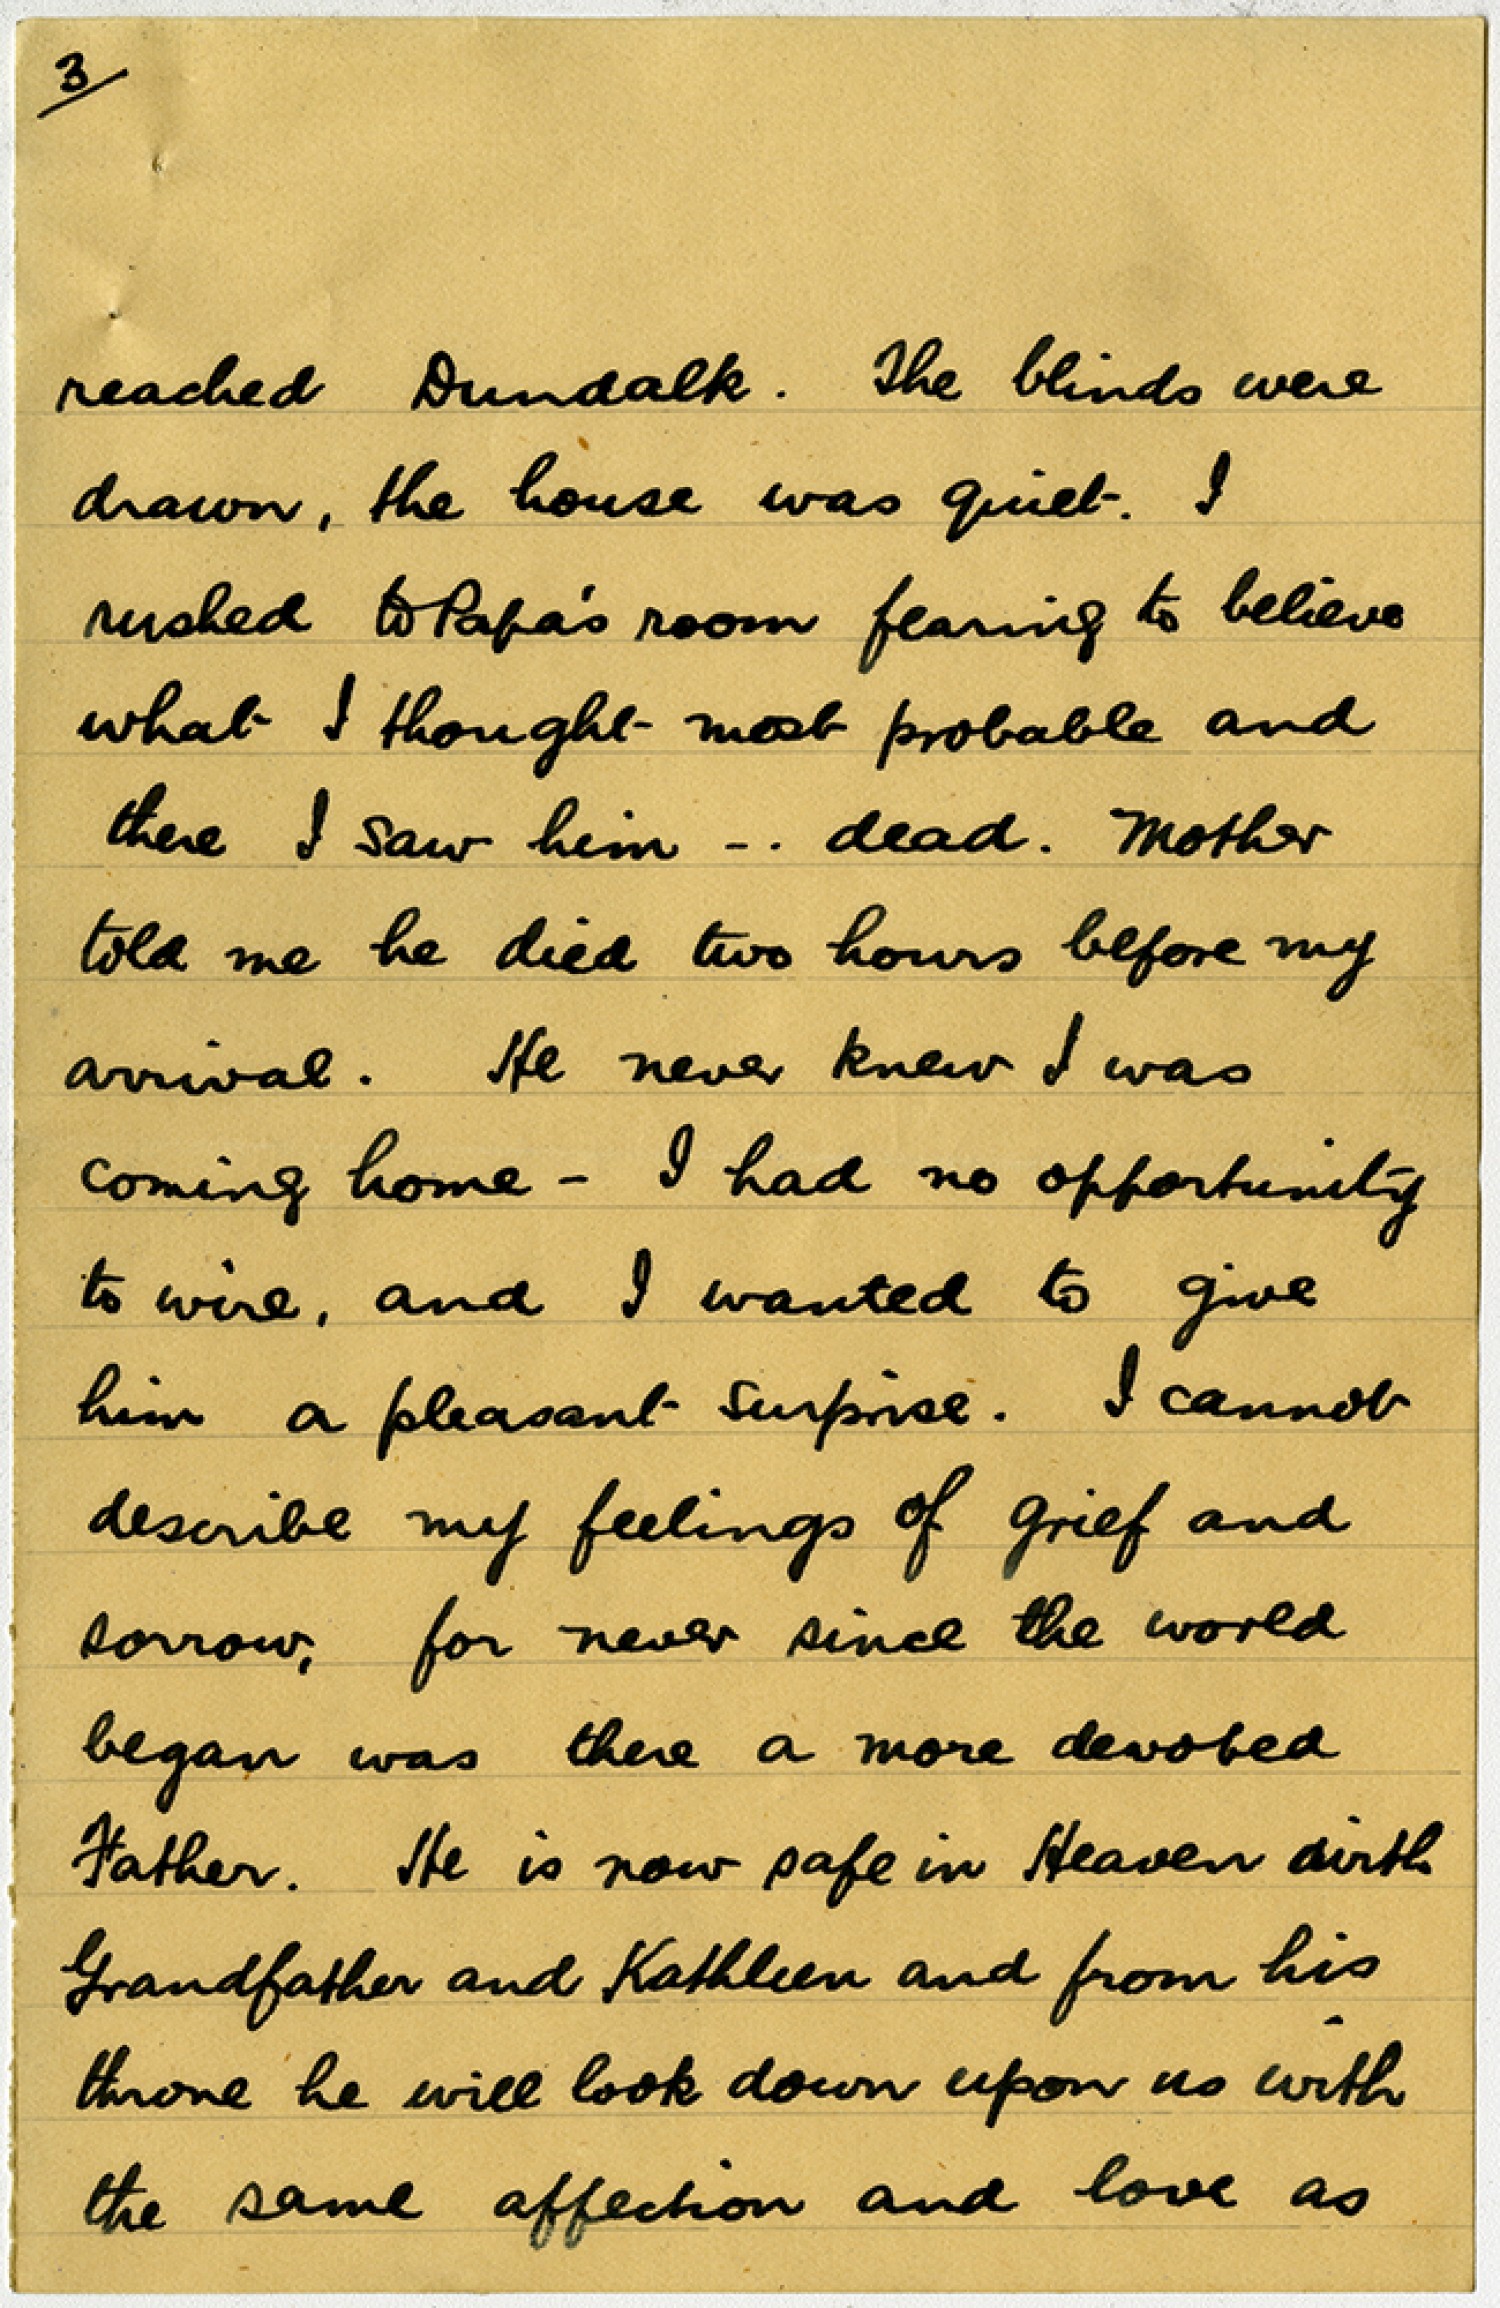 3
reached Dundalk. The blinds were
drawn, the house was quiet. I
rushed to Papa's room fearing to believe
what I thought most probable and
there I saw him -.. dead. Mother
told me he died two hours before my
arrival. He never knew I was
coming home - I had no opportunity
to wire, and I wanted to give
him a pleasant surprise. I cannot
describe my feelings of grief and
sorrow, for never since the world
began was there a more devoted
Father. He is now safe in Heaven with
Grandfather and Kathleen and from his
throne he will look down upon us with
the same affection and love as